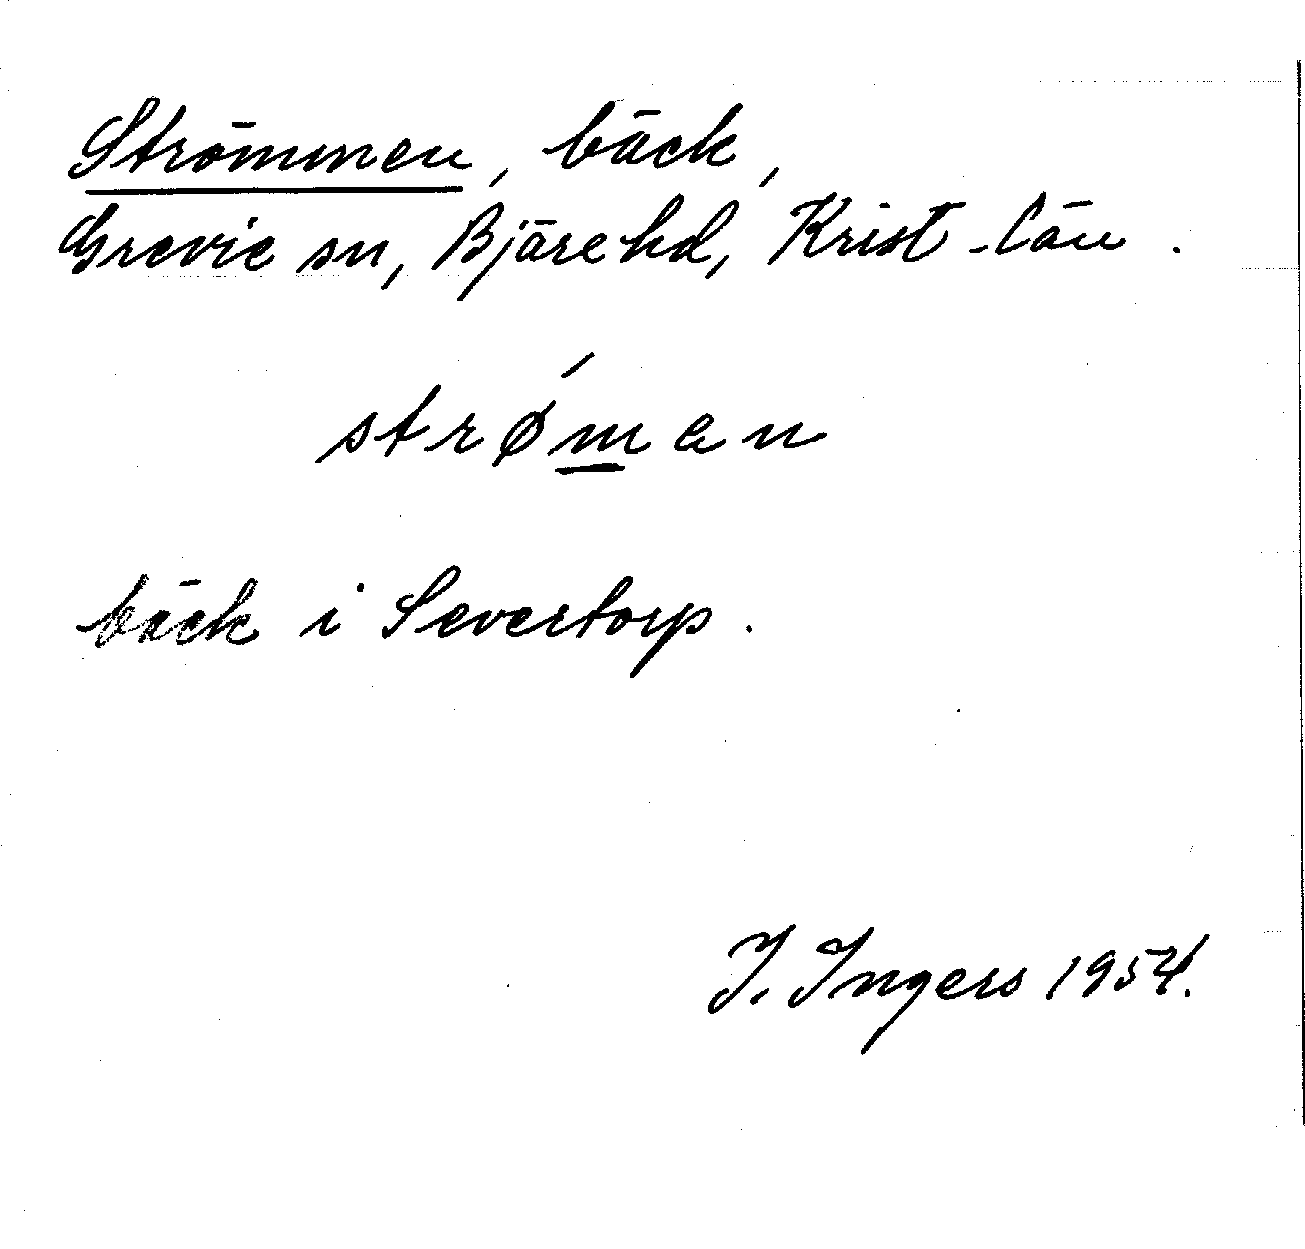 Strömmen, bäck,
Grevie sn, Bjäre hd, Krist-län.
strø´man
bäck i Severtorp.
I. Ingers 1954.